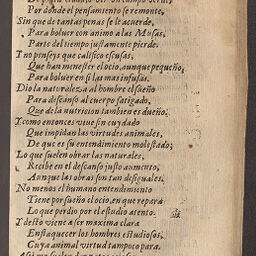 Por donde el pensamiento se remonte,
Sin que de tantas penas se le acuerde,
Para boluer con animo a las Musas,
Parte del tiempo justamente pierde.
Y no pienses que califico escusas,
Que han menester el ocio, aunque pequeño,
Para boluer en si las mas infusas.
Dio la naturaleza al hombre el sueño
Para descanso al cuerpo fatigado,
Que de la nutricion tambien es dueño.
Y como entonces viue sin cuydado
Que impidan las virtudes animales,
De que es su entendimiento molestado;
Lo que suelen obrar las naturales,
Recibe en el descanso justo aumento,
Aunque las obras son tan desiguales.
No menos el humano entendimiento
Tiene por sueño el ocio, en que repara
Lo que perdio por el estudio atento.
Y desto viene a ser maxima clara
Enflaquecer los hombres estudiosos,
Cuya animal virtud tampoco para.